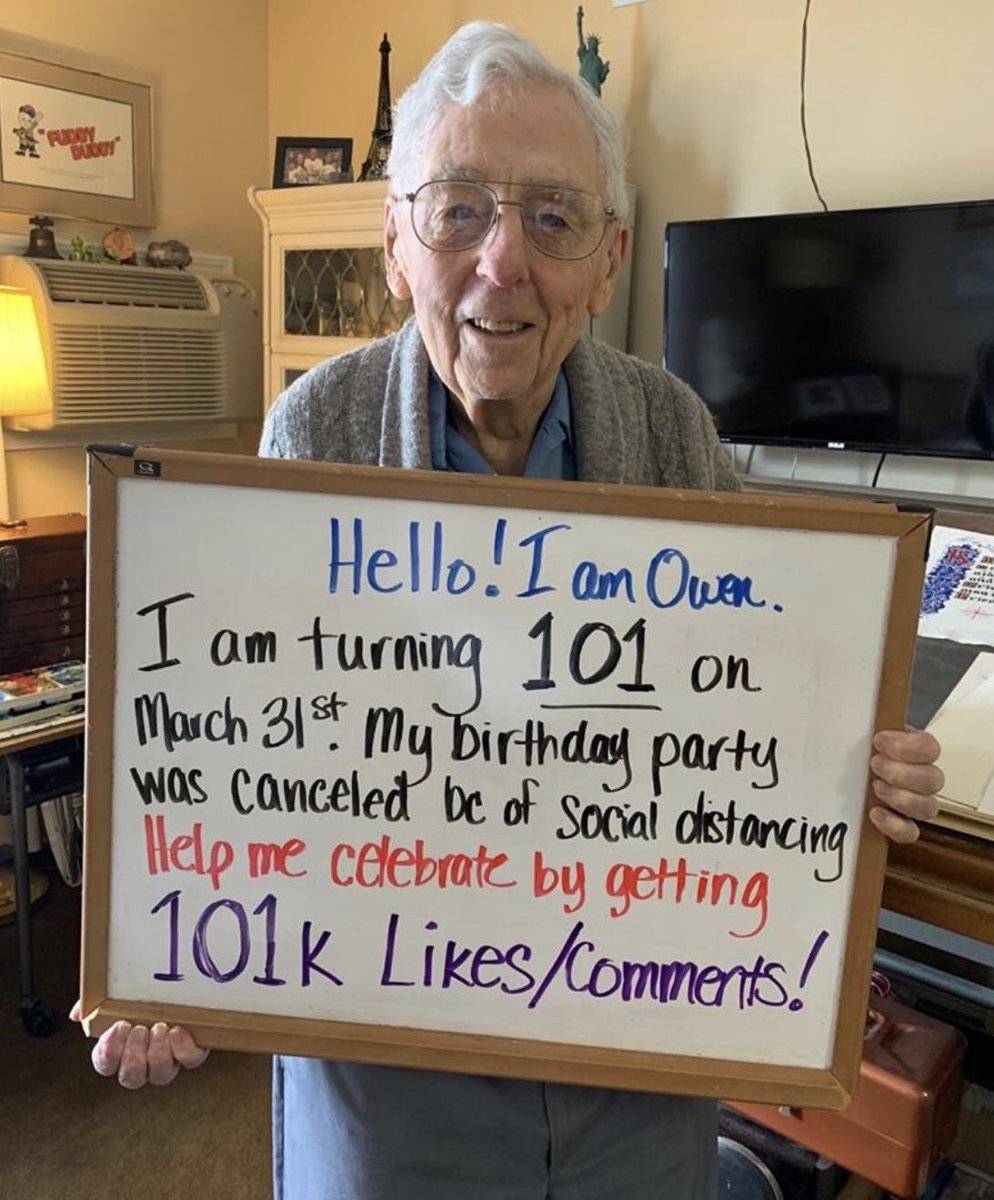 "FUDDY
DUDDY"
RCA
Hello! I am Owen.
I am turning 101 on
March 31st. My birthday party
was canceled bc of social distancing
Help me celebrate by getting
101k Likes/Comments!